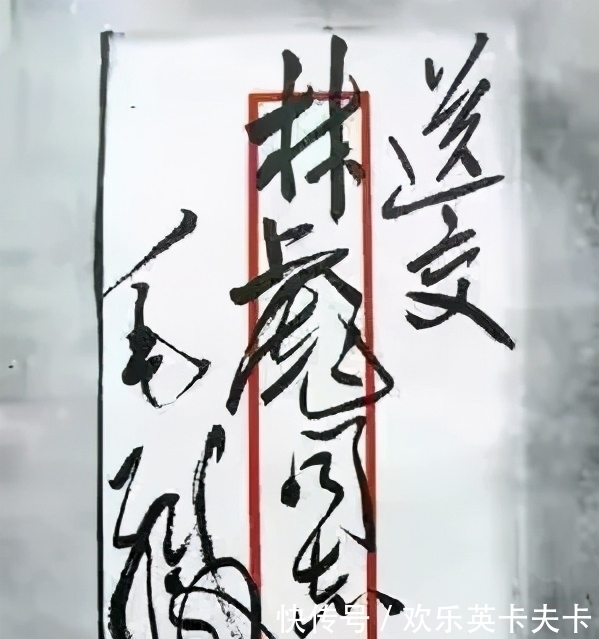 送交
林彪同志
毛
快传号/欢乐英卡夫卡